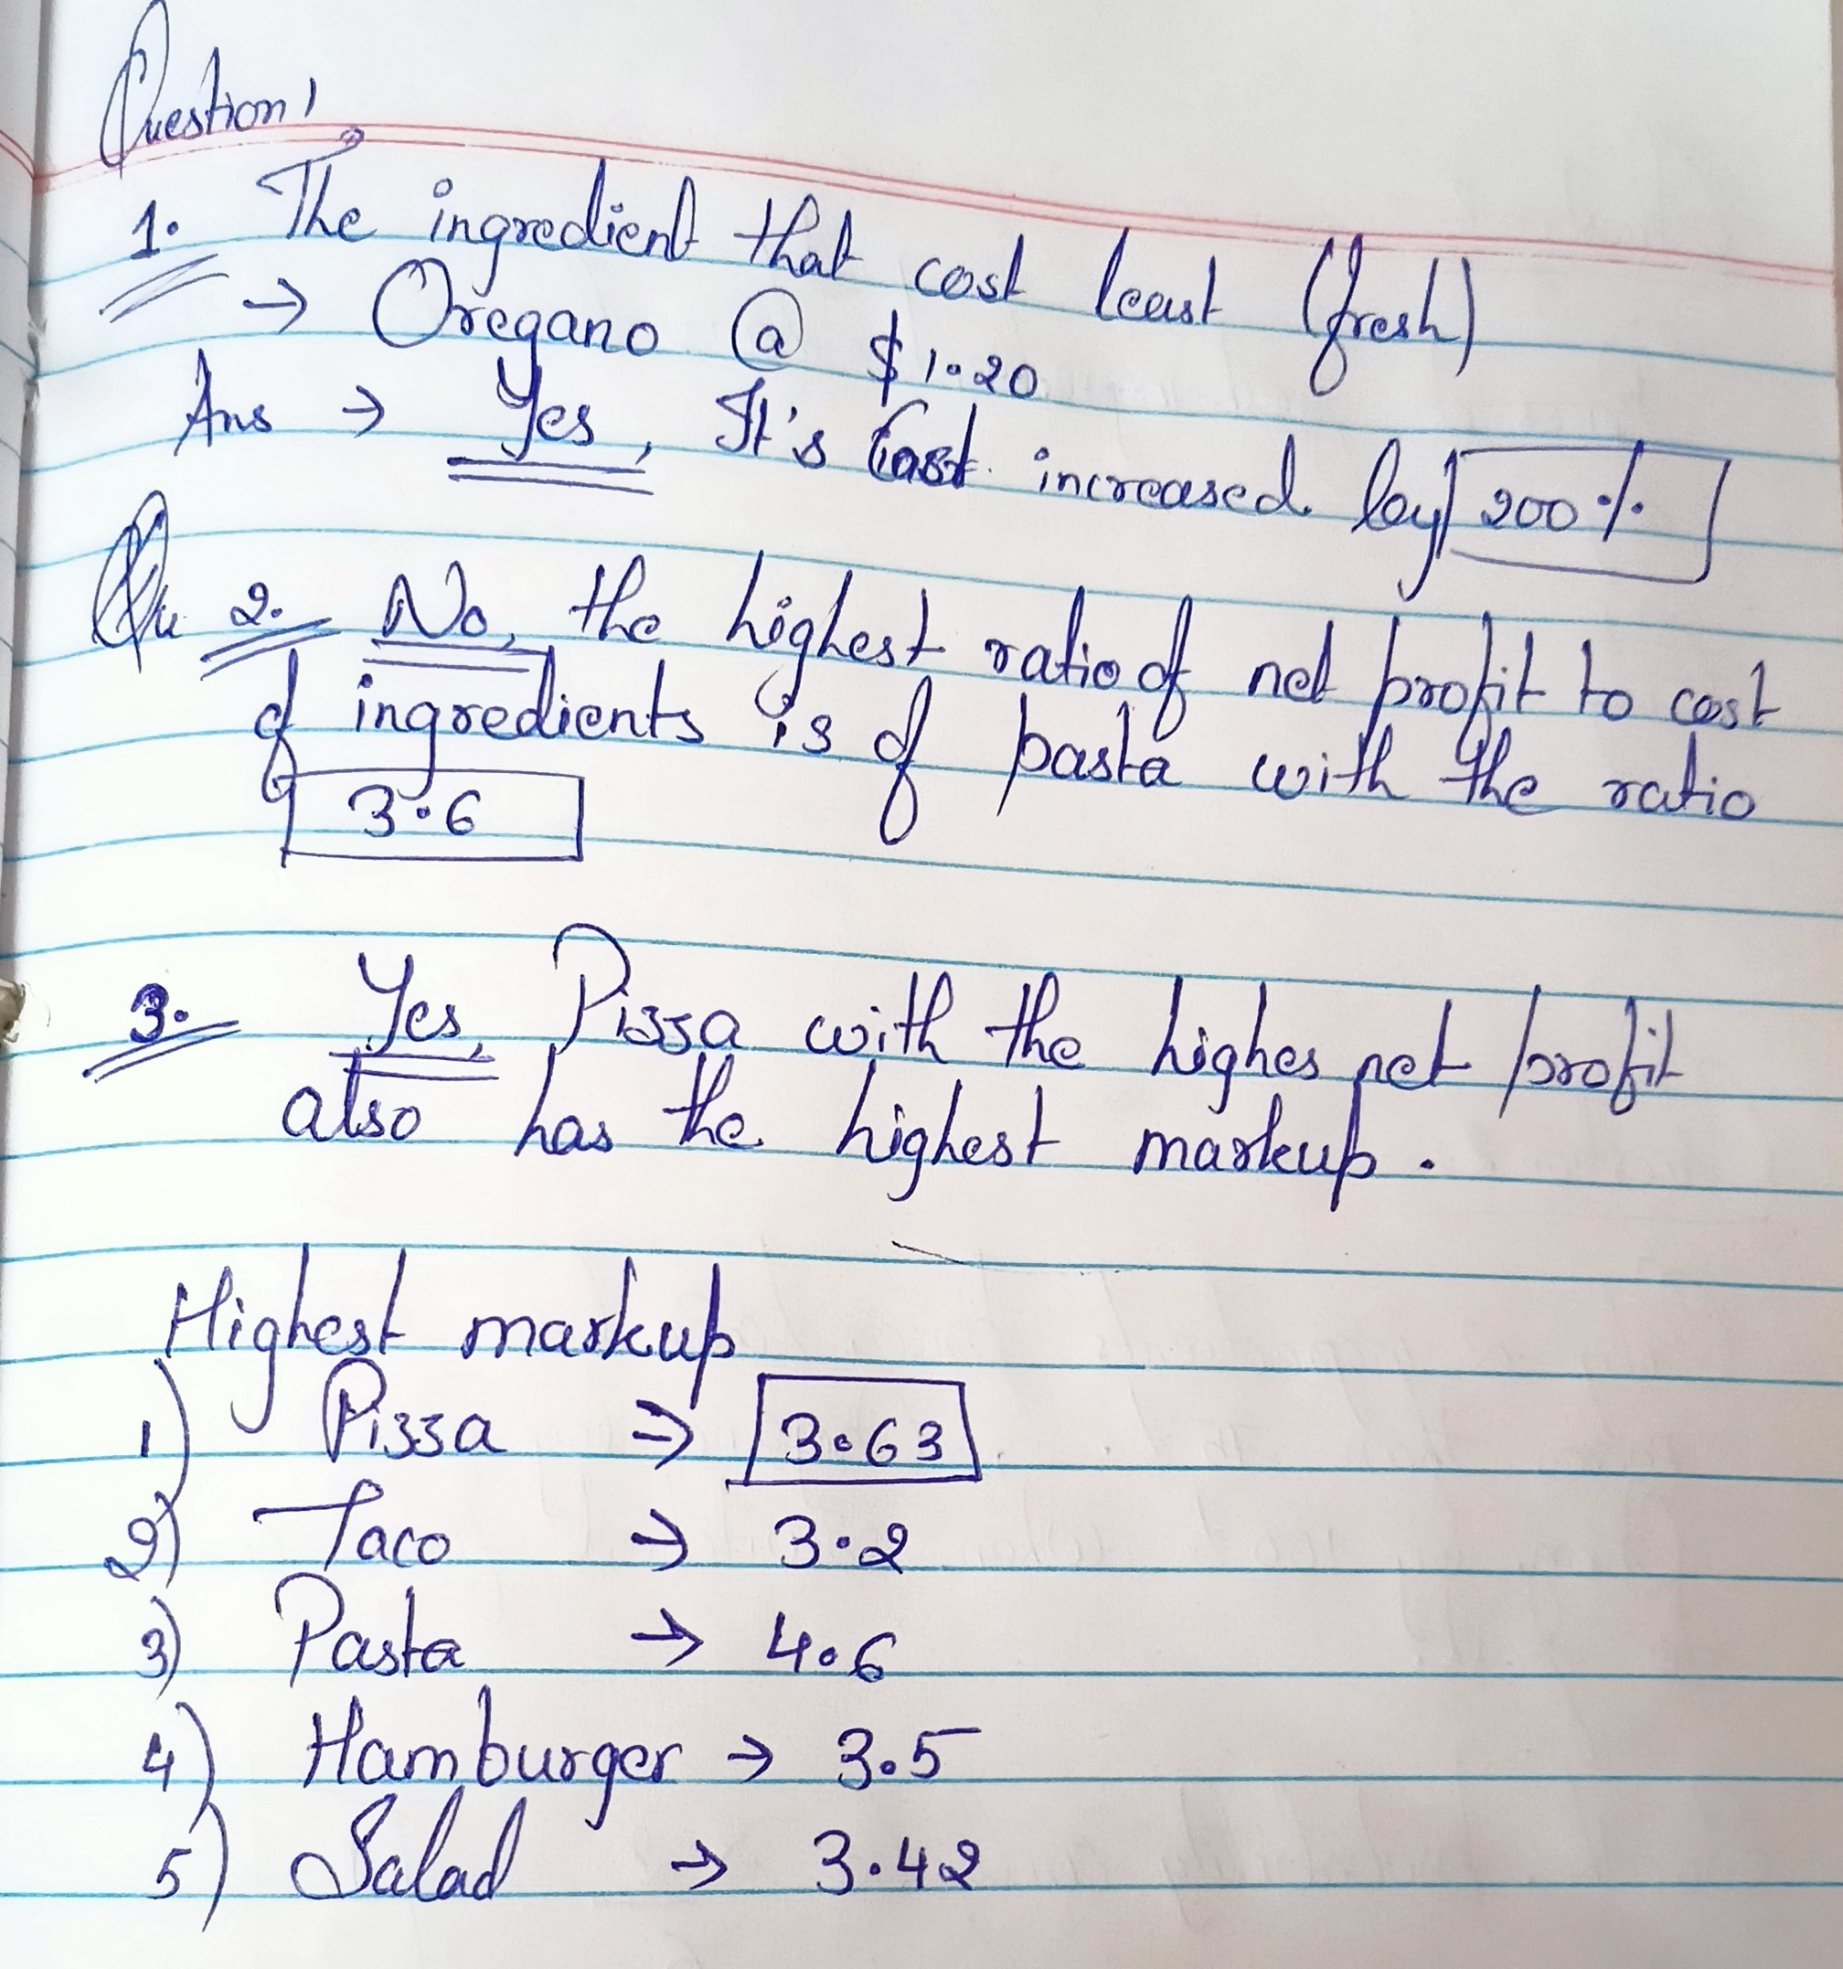 Question 1
1. The ingredient that cost least (fresh)
→ Oregano @ $1.20
Ans → Yes, It's Cost increased by 200%
Qu 2. No, the highest ratio of net profit to cost
of ingredients is of pasta with the ratio
3.6
3. Yes, Pizza with the highes net profit
also has the highest markup.
Highest markup
1) Pizza → 3.63
2) Taco → 3.2
3) Pasta → 4.6
4) Hamburger → 3.5
5) Salad → 3.42